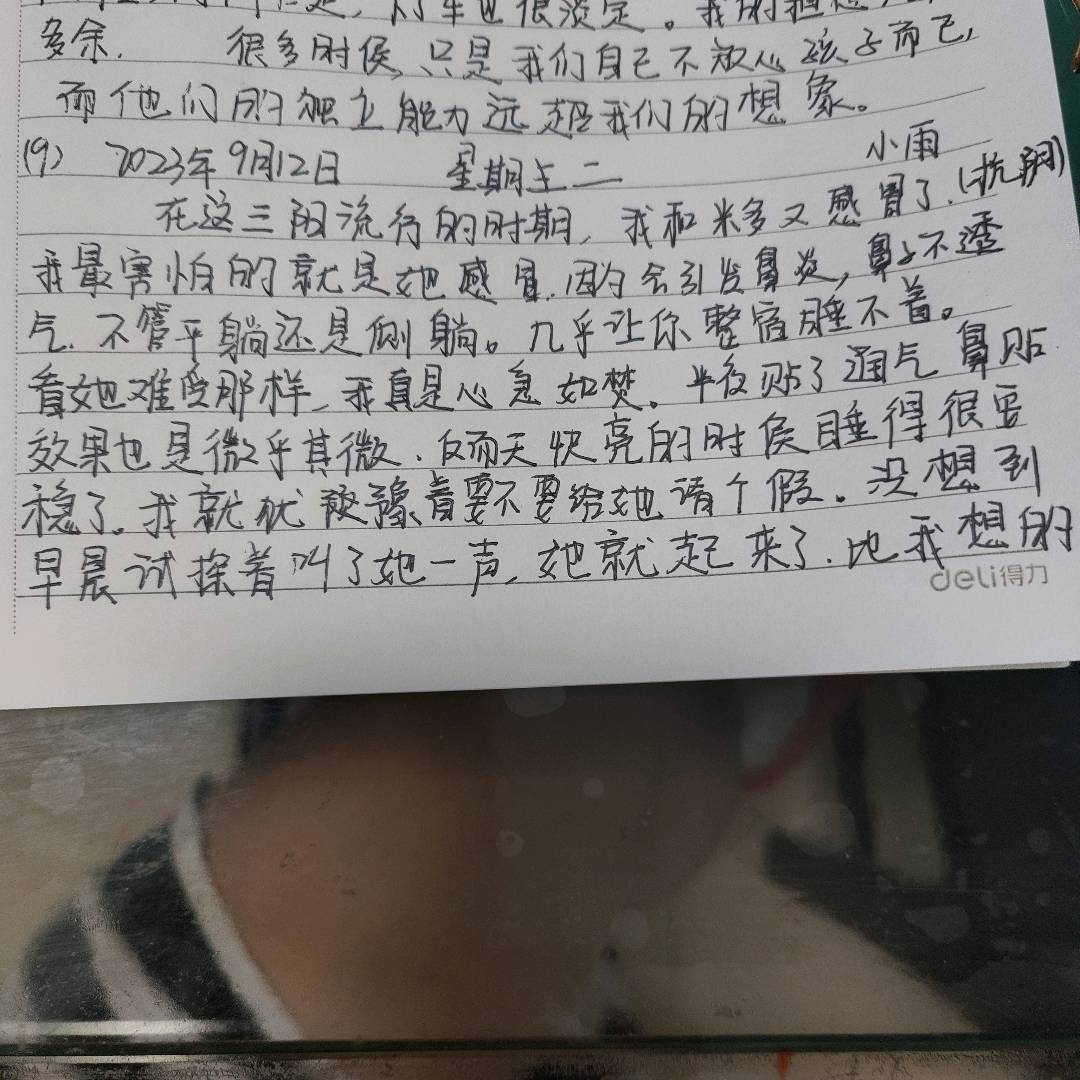 灯车也很淡定。我的担
多余. 很多时侯,只是我们自己不放心孩子而已,
而他们的独立能力远超我们的想象。
(9) 2023年9月12日 星期二 小雨
在这三阳流行的时期,我和米多又感冒了.(抗阴)
我最害怕的就是她感冒.因为会引发鼻炎,鼻子不透
气.不管平躺还是侧躺。几乎让你整宿睡不着。
看她难受那样,我真是心急如焚。半夜贴了通气鼻贴
效果也是微乎其微.反而天快亮的时侯睡得很安
稳了。我就犹豫着要不要给她请个假。没想到
早晨试探着叫了她一声,她就起来了.比我想的
deli得力